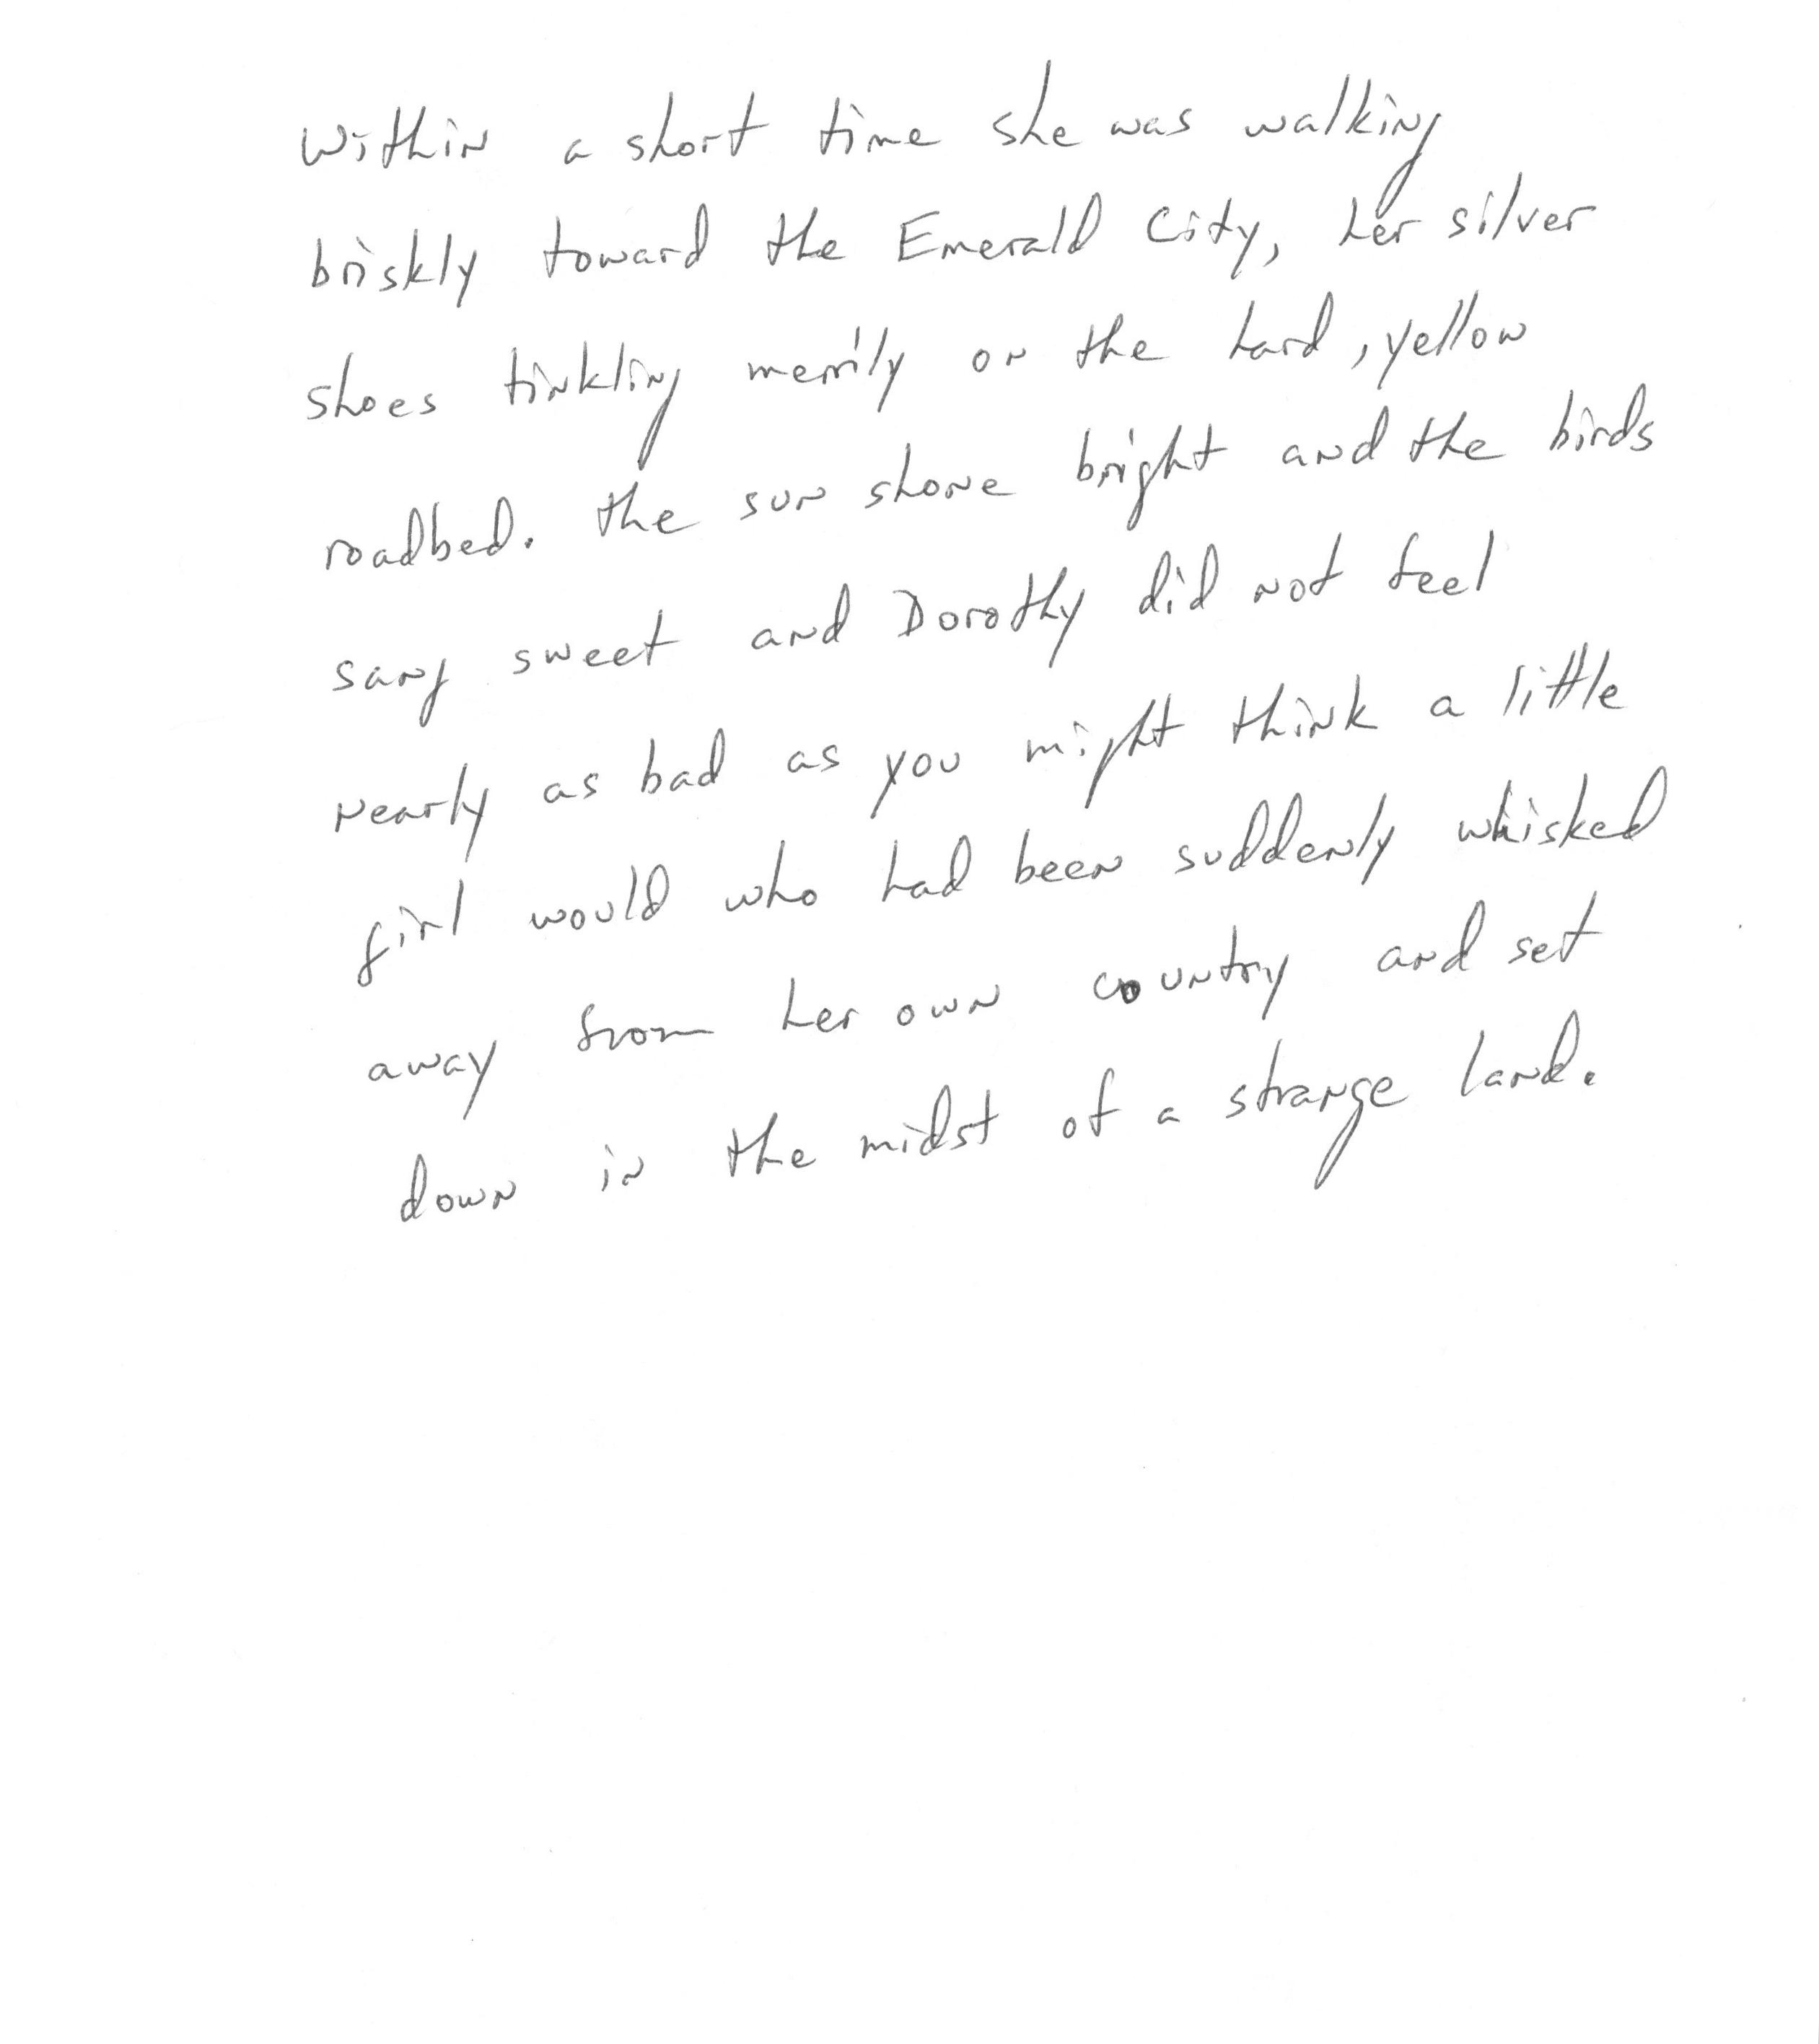 Within a short time she was walking
briskly toward the Emerald City, her silver
shoes tinkling merrily on the hard, yellow
roadbed. the sun shone bright and the birds
sang sweet and Dorothy did not feel
nearly as bad as you might think a little
girl would who had been suddenly whisked
away from her own country and set
down in the midst of a strange land.